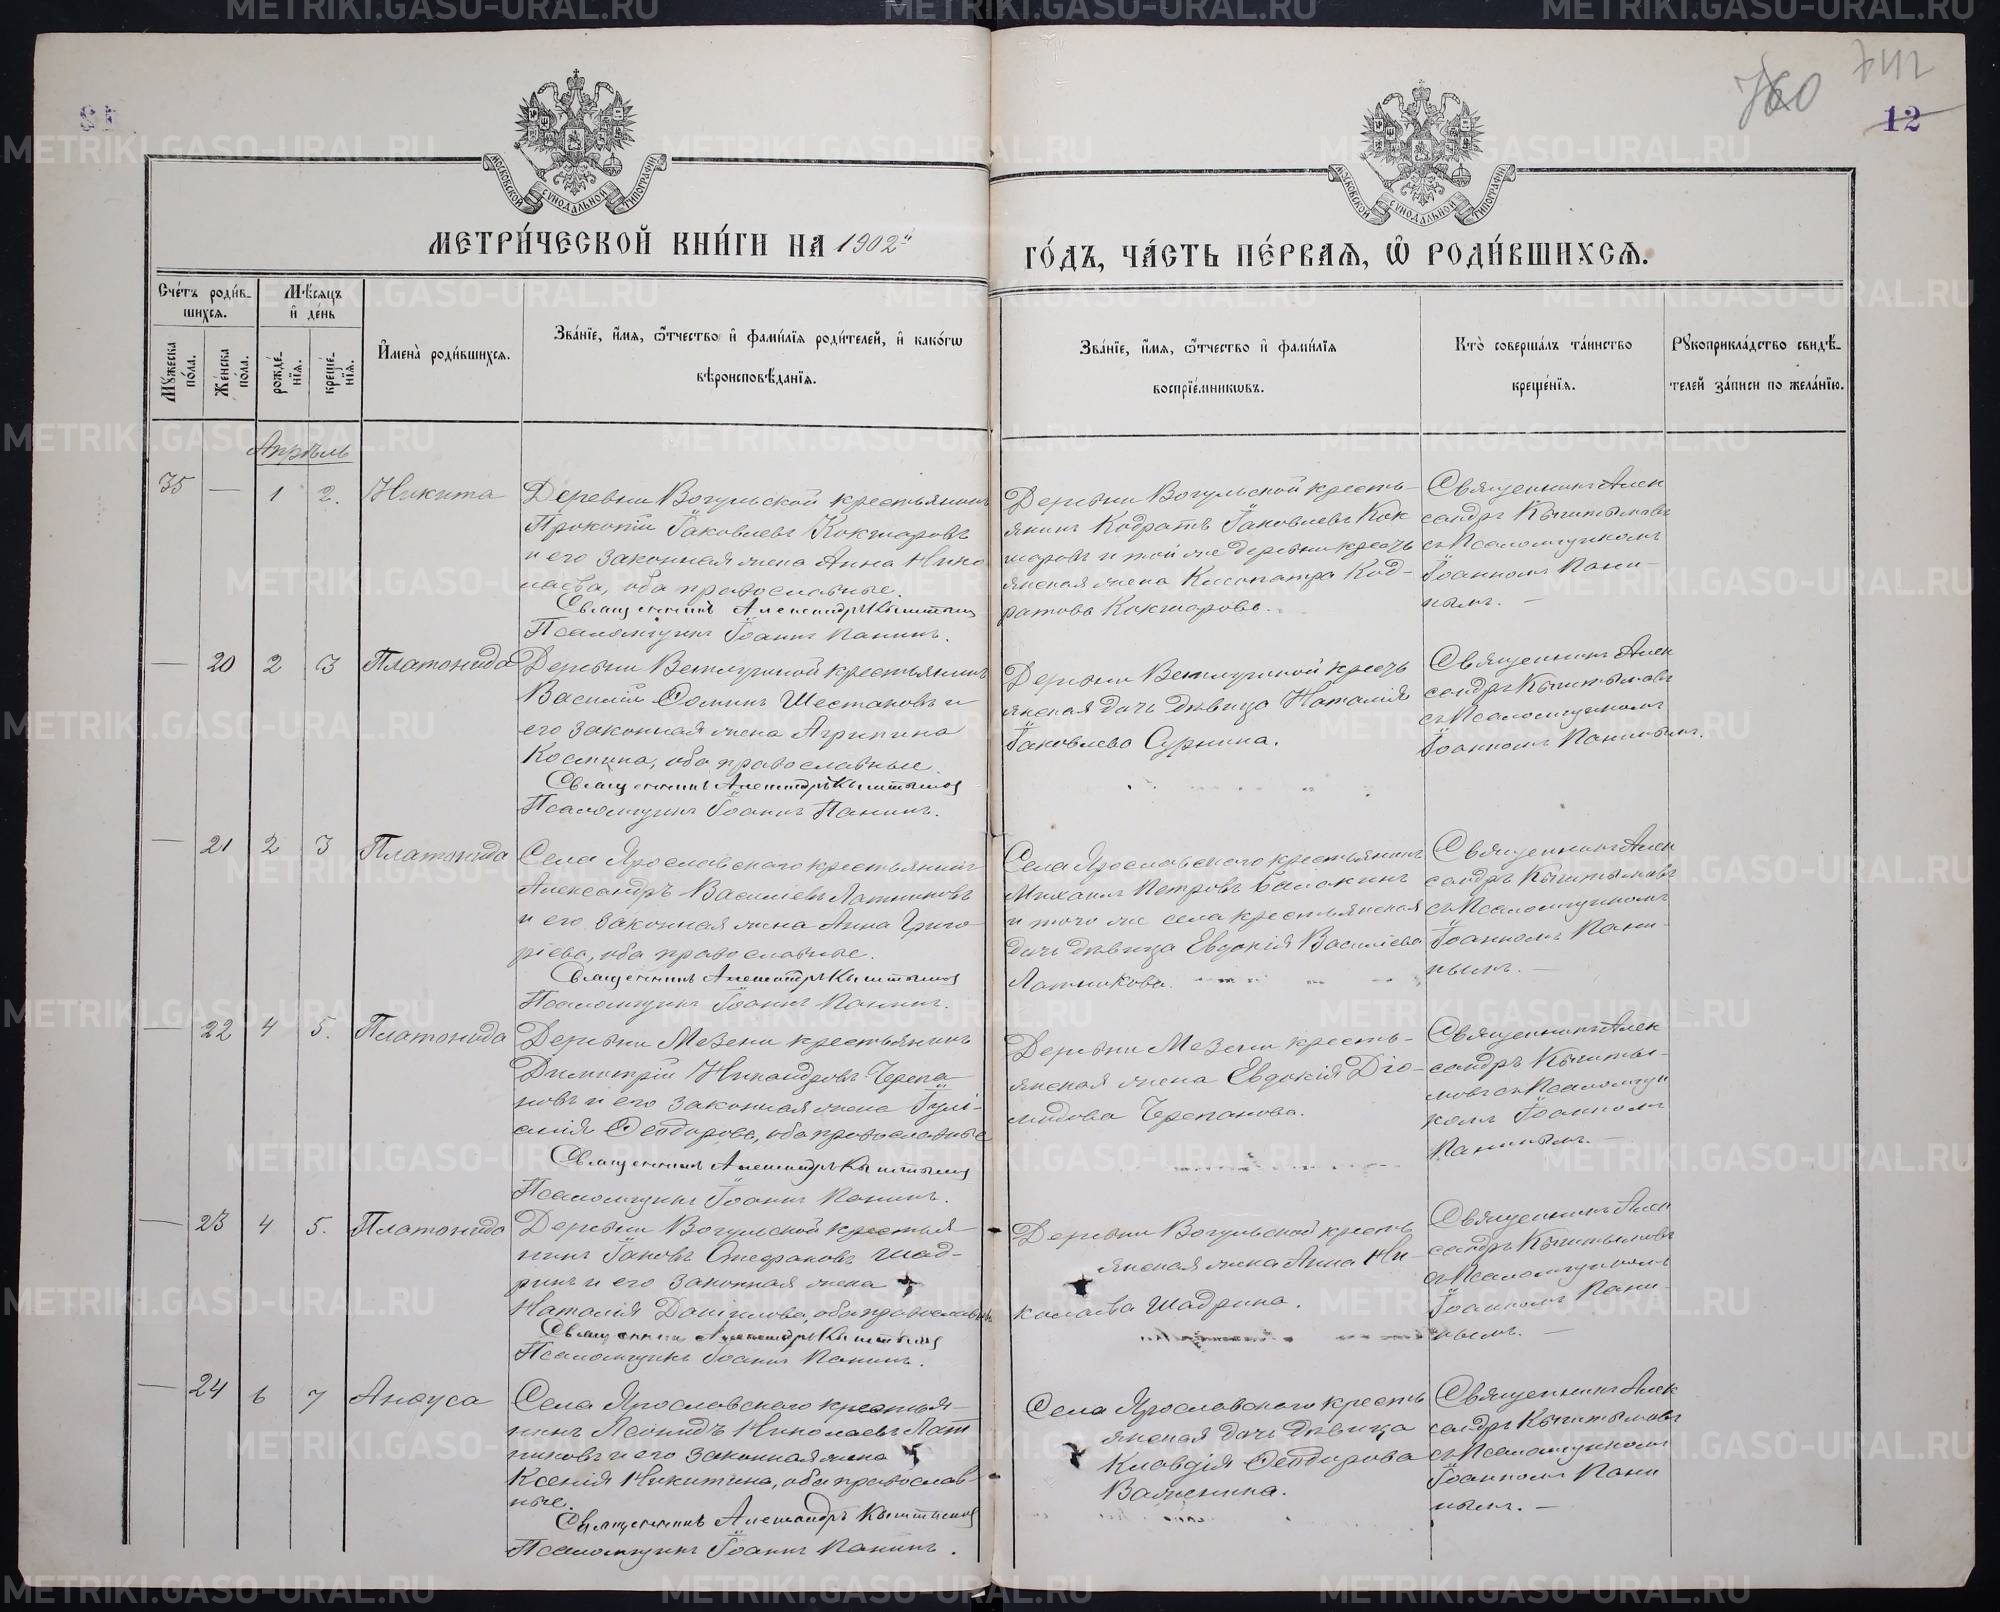 760 742
12
МОСКОВСКОЙ СѴНОДАЛЬНОЙ ТИПОГРАФІИ
МОСКОВСКОЙ СѴНОДАЛЬНОЙ ТИПОГРАФІИ
МЕТРИ́ЧЕСКОЙ КНИ́ГИ НА 1902й ГО́ДЪ, ЧА́СТЬ ПЕ́РВАЯ, Ѡ РОДИ́ВШИХСЯ.
Сче́тъ роди́в-
шихся.
Мѣ́сяцъ
и де́нь
Мꙋжеска
по́ла.
Же́нска
по́ла.
рожде́-
нїя.
креще́-
нїя.
Имена̀ роди́вшихся.
Зва́нїе, и́мя, ѻ҆́тчество и фами́лїя роди́телей, и како́гѡ
вѣроисповѣ́данїя.
Зва́нїе, и́мя, ѻ҆́тчество и фами́лїя
воспрїе́мникѡвъ.
Кто̀ соверша́лъ та́инство
креще́нїя.
Рꙋкоприкла́дство свидѣ́-
телей за́писи по жела́нїю.
Апрѣль
35 — 1 2. Никита
Деревни Вогульской крестьянинъ
Прокопій Іаковлевъ Кокшаровъ
и его законная жена Анна Нико
лаева, оба православные.
Священникъ Александръ Кыштымовъ
Псаломщикъ Іоаннъ Панинъ.
Деревни Вогульской кресть-
янинъ Кодратъ Іаковлевъ Кок
шаровъ и той же деревни кресть
янская жена Клеопатра Код-
ратова Кокшарова.
Священникъ Алек
сандръ Кыштымовъ
съ Псаломщикомъ
Іоанномъ Пани-
нымъ. —
— 20 2 3 Платонида
Деревни Ветлугиной крестьянинъ
Василій Ѳоминъ Шестаковъ и
его законная жена Агрипина
Космина, оба православные.
Священникъ Александръ Кыштымовъ
Псаломщикъ Іоаннъ Панинъ.
Деревни Ветлугиной кресть
янская дочь дѣвица Наталія
Іаковлева Сурнина.
Священникъ Алек
сандръ Кыштымовъ
съ Псаломщикомъ
Іоанномъ Панинымъ.
— 21 2 3 Платонида
Села Ярославскаго крестьянинъ
Александръ Василіевъ Латниковъ
и его законная жена Анна Григо-
ріева, оба православные.
Священникъ Александръ Кыштымовъ
Псаломщикъ Іоаннъ Панинъ.
Села Ярославскаго крестьянинъ
Михаилъ Петровъ Балакинъ
и того же села крестьянская
дочь дѣвица Евдокія Василіева
Латникова.
Священникъ Алек
сандръ Кыштымовъ
съ Псаломщикомъ
Іоанномъ Пани-
нымъ. —
— 22 4 5. Платонида
Деревни Мезени крестьянинъ
Димитрій Никандровъ Черепа-
новъ и его законная жена Іулі-
анія Ѳеодорова, оба православные
Священникъ Александръ Кыштымовъ
Псаломщикъ Іоаннъ Панинъ.
Деревни Мезени кресть-
янская жена Евдокія Діо-
мидова Черепанова.
Священникъ Алек
сандръ Кышты-
мовъ съ Псаломщи
комъ Іоанномъ
Панинымъ. —
— 23 4 5. Платонида
Деревни Вогульской крестья-
нинъ Іаковъ Стефановъ Шад-
ринъ и его законная жена
Наталія Даніилова, оба православные
Священникъ Александръ Кыштымовъ
Псаломщикъ Іоаннъ Панинъ.
Деревни Вогульской кресть
янская жена Анна Ни-
колаева Шадрина.
Священникъ Алек
сандръ Кыштымовъ
съ Псаломщикомъ
Іоанномъ Пани-
нымъ. —
— 24 6 7 Анѳуса
Села Ярославскаго крестья-
нинъ Леонидъ Николаевъ Лат
никовъ и его законная жена
Ксенія Никитина, оба православ-
ные.
Священникъ Александръ Кыштымовъ
Псаломщикъ Іоаннъ Панинъ.
Села Ярославскаго кресть
янская дочь дѣвица
Клавдія Ѳеодорова
Важенина.
Священникъ Алек
сандръ Кыштымовъ
съ Псаломщикомъ
Іоанномъ Пани
нымъ. —
METRIKI.GASO-URAL.RU